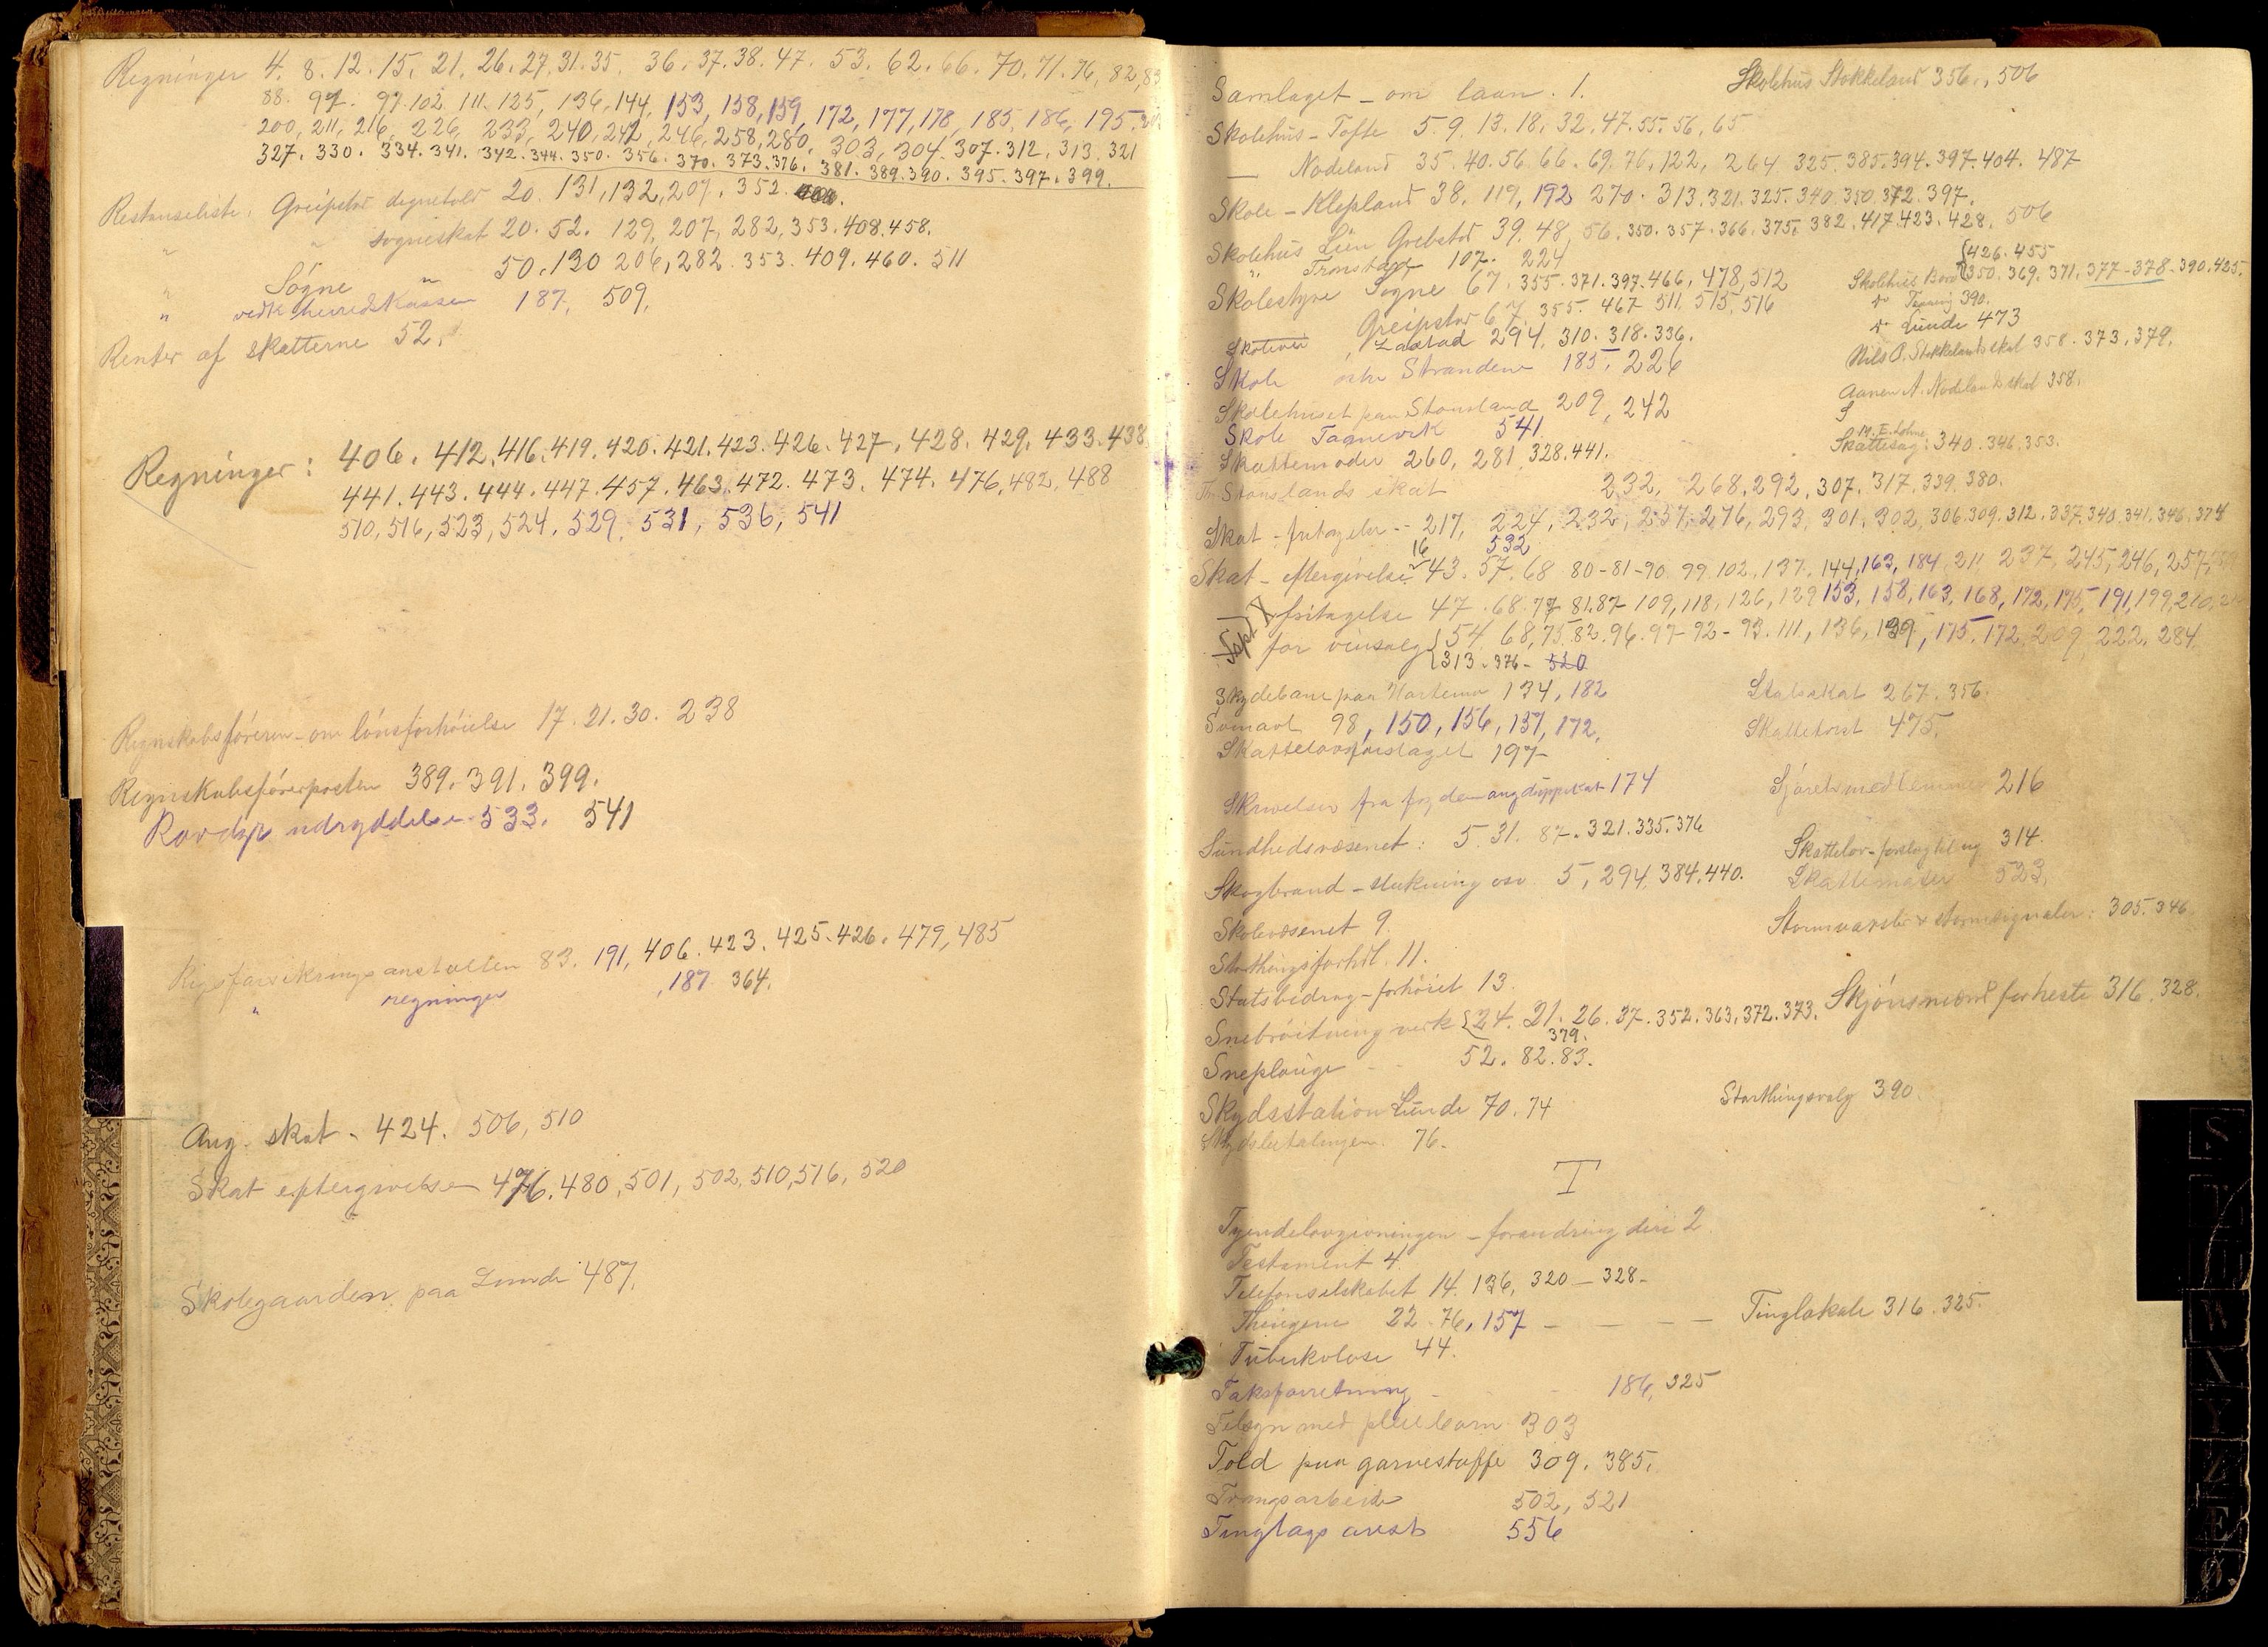 Regninger 4. 8. 12. 15. 21. 26. 27. 31. 35. 36. 37. 38. 47. 53. 62. 66. 70. 71. 76, 82, 83
88. 97. 97. 102. 111. 125, 136, 144, 153, 158, 159, 172, 177, 178, 185, 186, 195.
200, 211, 216, 226, 233, 240, 242, 246, 258, 280, 303, 304. 307. 312. 313. 321
327. 330. 334. 341. 342. 344. 350. 356. 370. 373. 376. 381. 389. 390. 395. 397. 399.
Restanseliste, Greipstad degnetold 20. 131, 132, 207, 352.
" " sogneskat 20. 52. 129, 207, 282, 353. 408. 458.
" Søgne " 50. 130 206, 282. 353. 409. 460. 511
" vedk herredskassen 187, 509,
Renter af skatterne 52,
Regninger: 406. 412. 416. 419. 420. 421. 423. 426. 427. 428. 429. 433. 438
441. 443. 444. 447. 457. 463. 472. 473. 474. 476, 482, 488
510, 516, 523, 524, 529, 531, 536, 541
Regnskabsføreren - om lønsforhøielse 17. 21. 30. 238
Regnskabsførerposten 389. 391. 399.
Rovdyr udryddelse 533. 541
Rigsforsikringsanstalten 83, 191, 406. 423. 425. 426. 479, 485
" regninger , 187 364.
Ang. skat - 424. 506, 510
Skat eftergivelse 476. 480, 501, 502, 510, 516, 520
Skolegaarden paa Lunde 487,
Samlaget - om laan. 1.
Skolehus Stokkeland 356., 506
Skolehus - Tofte 5. 9. 13. 18. 32. 47. 55. 56, 65
— Nodeland 35. 40. 56. 66. 69. 76, 122, 264 325. 385. 394. 397. 404. 487
Skole - Klepland 38. 119, 192 270. 313. 321. 325. 340. 350. 372. 397.
Skolehus Lien Grebstad 39. 48, 56. 350. 357. 366. 375. 382. 417. 423. 428. 506
" Tronstad 107. 224
{426. 455
Skolestyre Søgne 67. 355. 371. 397. 466, 478, 512
350. 369. 371. 377 - 378 - 390. 425.
Greipstad 67. 355. 467 511. 515. 516
390.
Lastad 294, 310. 318. 336.
Lunde 473
Skole Stranden 185, 226
Nils O. Stokkelands skat 358. 373. 379.
Skolehuset paa Stousland 209, 242
Aanen A. Nodeland skat 358.
S
Skole Taanevik 541
M. E. Lohne
Skattesag: 340. 346. 353.
Skattemøder 260, 281, 328. 441.
Stouslands skat 232, 268. 292, 307. 317. 339. 380.
Skat - fritagelse - 217, 224, 232, 257, 276, 293, 301. 302, 306. 309. 312. 337. 340. 341. 346. 374
532
16
Skat - eftergivelse 43. 57. 68 80 - 81 - 90 99. 102. 137. 144, 163, 184, 211, 237, 245, 246, 257,
fritagelse 47. 68. 77 81. 87 109, 118, 126, 129 153, 158, 163, 168, 172, 175, 191, 199, 210,
for vinsalg {54. 68, 75. 82. 96. 97 - 92 - 93. 111, 136, 139, 175. 172, 209, 222. 284,
{313. 376 - 520
Skydebane paa Hortemo 134, 182
Statsskat 267. 356.
98, 150, 156, 157, 172,
475.
Skattelovforslaget 197
Skrivelser fra fogden ang 174
216
Sundhedsvæsenet: 5. 31. 87. 321. 335. 376
Skattelov - forslag til ny 314.
Skogbrand - slukning osv 5, 294, 384. 440.
Skattemøder 523.
Skolevæsenet 9.
Stormvarsler & stormsignaler: 305. 346
Storthingsforhdl. 11.
Statsbidrag - forhøiet 13.
Snebrøitning vedk {24. 21. 26. 37. 352. 363, 372. 373.
379.
Skjønsmænd for heste 316. 328.
Sneplouge - 52. 82. 83.
Skydsstation Lunde 70. 74
Storthingsvalg 390.
Skydsbetalingen. 76.
T
Tyendelovgivningen - forandring deri 2.
Testament 4.
Telefonselskabet 14. 136, 320 — 328 -
Thingene 22 - 76, 157 - — - —
Tinglokale 316. 325.
Tuberkulose 44.
Taksforretning - 186, 325
Tilsyn med pleiebarn 303
Told paa garnestoffe 309. 385.
Tvangsarbeide 502, 521
Tinglags arest 556
S
T
U
V
W
X
Y
Z
Æ
Ø